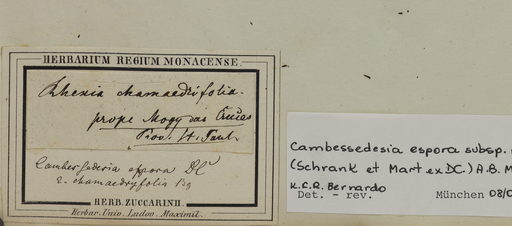 HERBARIUM REGIUM MONACENSE.
Rhexia chamaedrifolia.
prope Mogy das Cruces
Prov. St. Paul.
Cambessedesia espora DC
2. chamaedryfolia
HERB. ZUCCARINII.
Herbar. Univ. Ludov. Maximil.
Cambessedesia espora subsp.
(Schrank et Mart ex DC.) A.B. M
K.F.R. Bernardo
Det. - rev. München 08/0